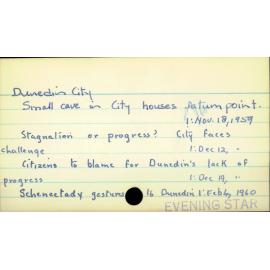 Dunedin City
Small cave in City houses return point.
1: Nov. 18, 1959
Stagnation or progress? City faces
challenge 1: Dec 12, "
Citizens to blame for Dunedin's lack of
progress 1: Dec 19, "
Schenectady gestures to Dunedin 1: Feb 6, 1960
EVENING STAR